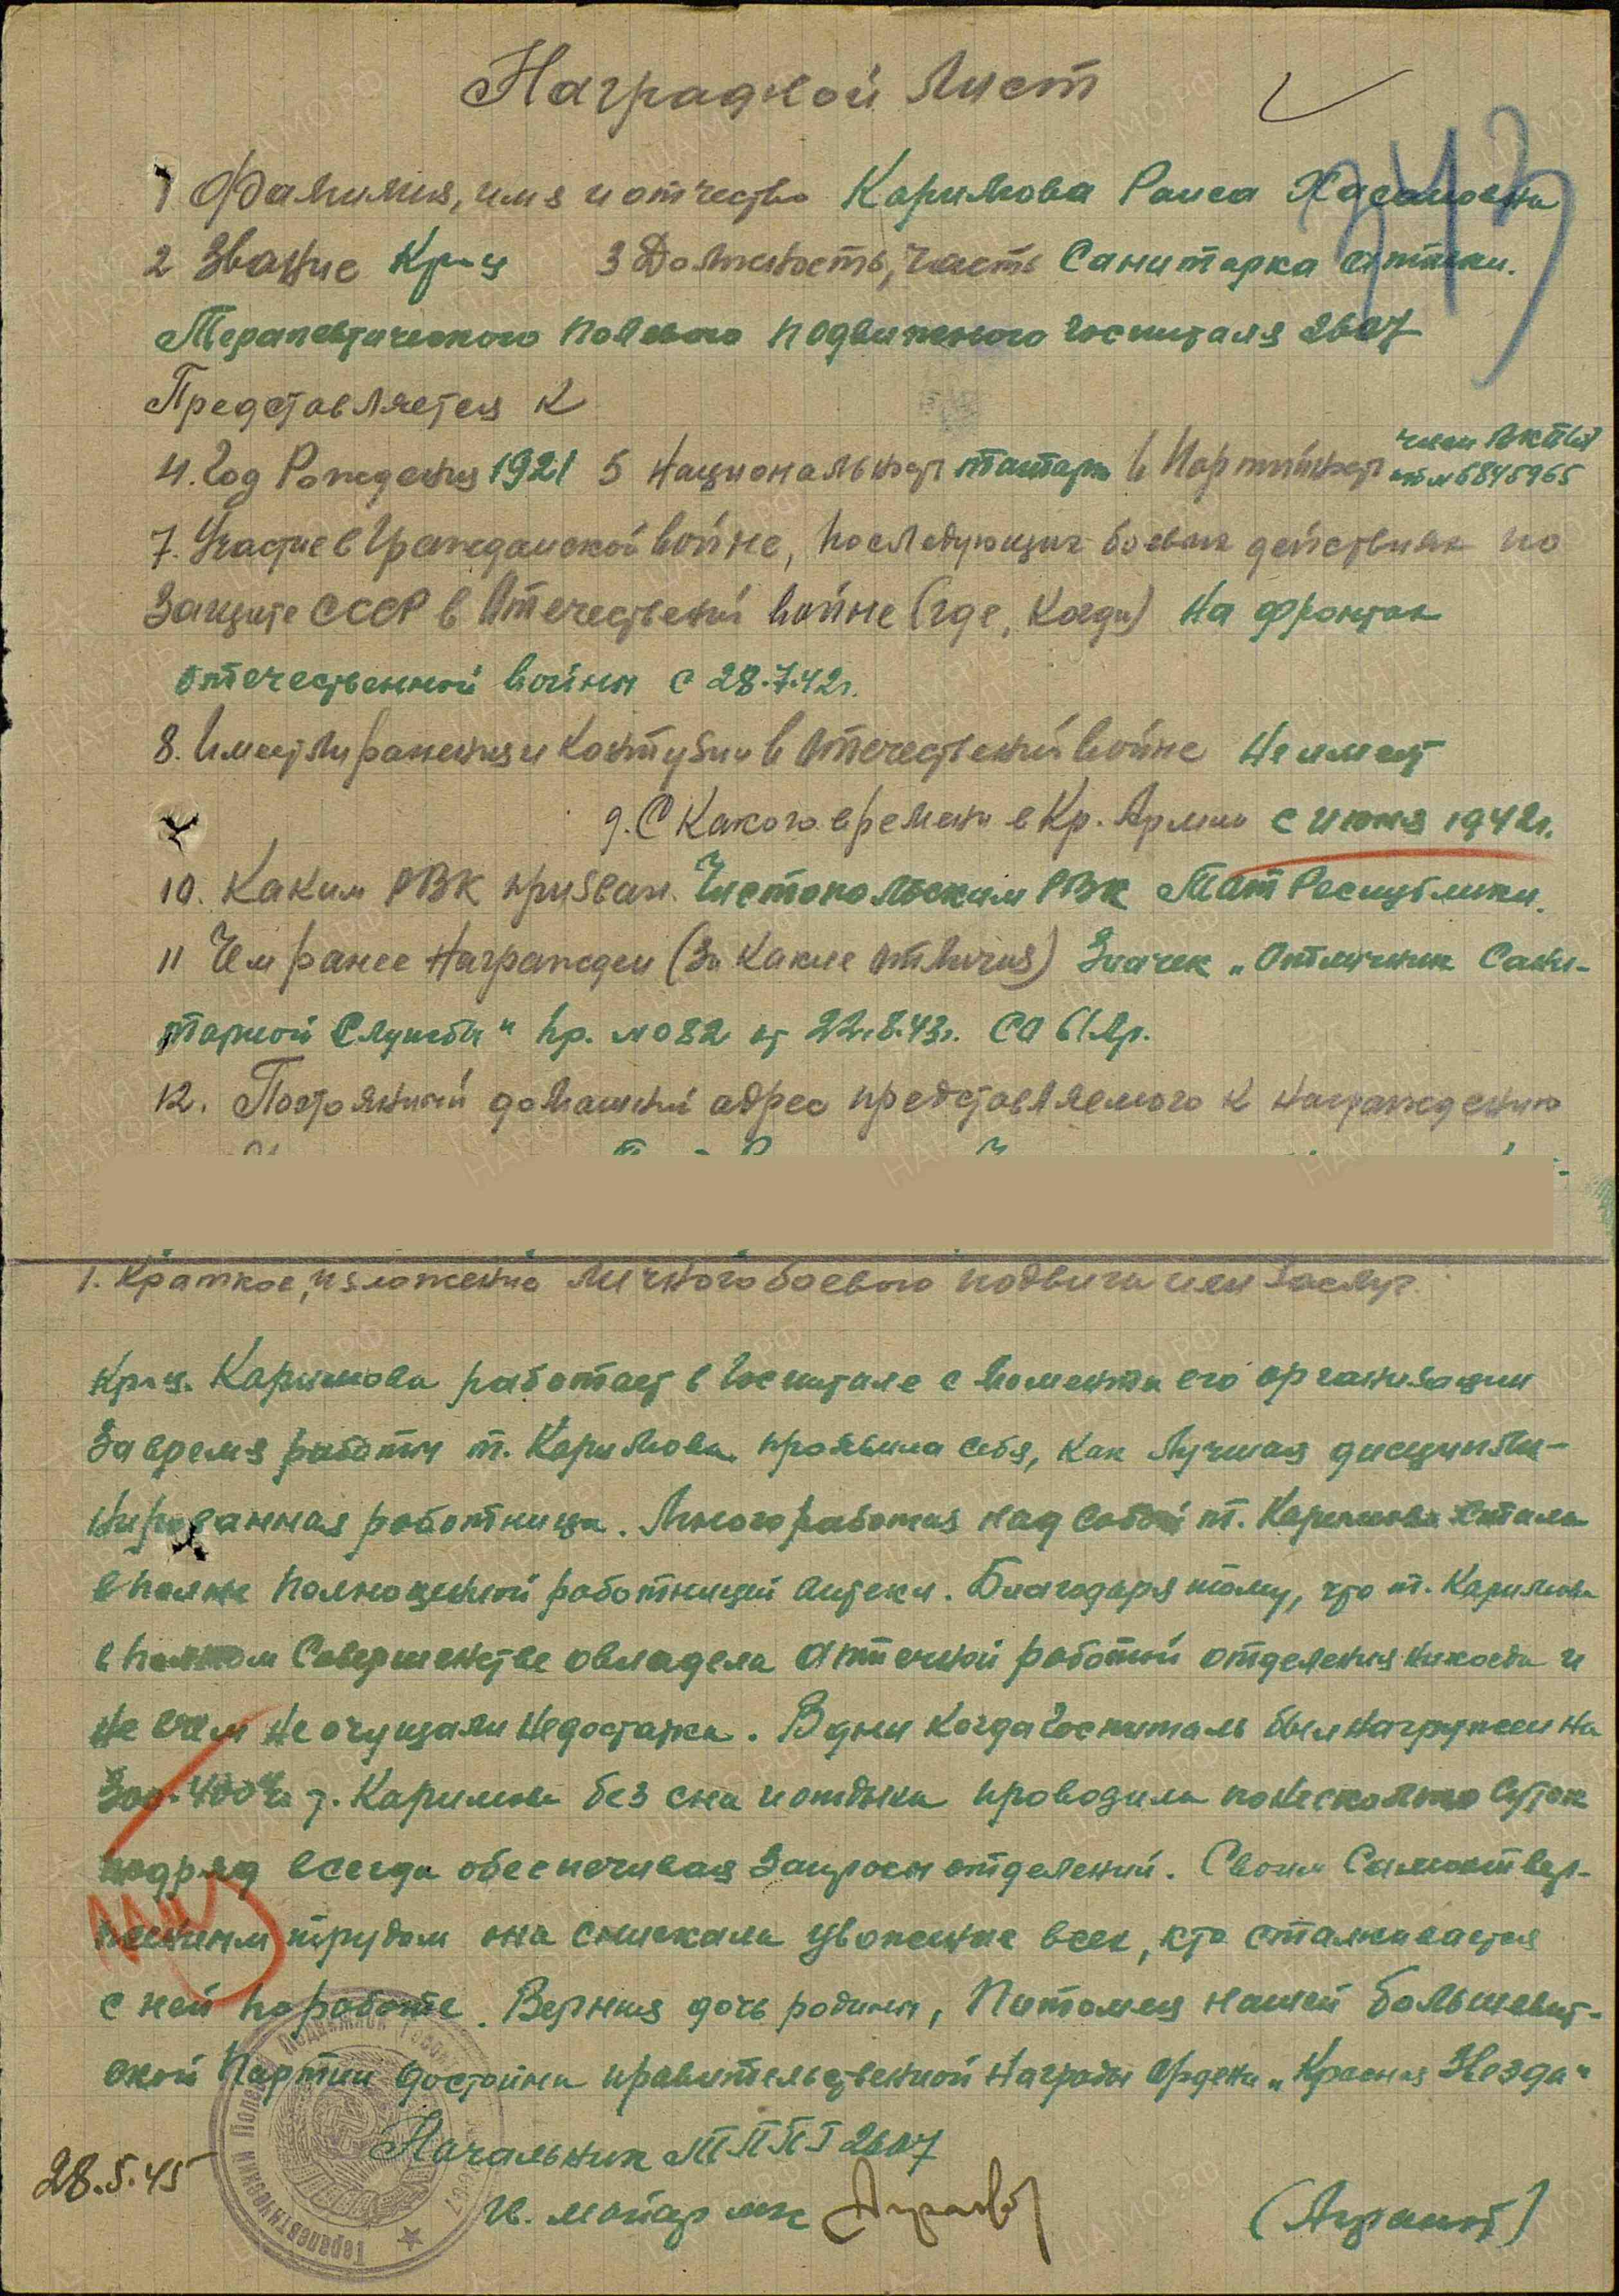 Наградной лист
343
1 Фамилия, имя и отчество Каримова Раиса Хасановна
2 Звание Кр-ц 3 Должность, часть Санитарка аптеки.
Терапевтического полевого подвижного госпиталя 2607
Представляется к
член ВКП(б)
4. Год Рождения 1921 5 Национальност татарка 6 Партийност пб №6845965
7. Участие в Гражданской войне, последующих боевых действиях по
защите СССР в Отечественой войне (где, когда) На фронтах
отечественной войны с 28.7.42г.
8. Имеет ли ранения и контузии в Отечественой войне Не имеет
9. С какого времени в Кр. Армии с июня 1942г.
10. Каким РВК призван. Чистопольским РВК Тат Республики.
11 Чем ранее награжден (за какие отличия) Значек „Отличник Сани-
тарной Службы" пр. №082 от 22.8.43г. СО 61 Ар.
12. Постоянный домашний адрес представляемого к награждению
1. Краткое, изложение личного боевого подвига или заслуг.
Кр-ц. Каримова работает в Госпитале с момента его организации
За время работы т. Каримова проявила себя, как лучшая дисципли-
нированная работница. Много работая над собой т. Каримова стала
вполне полноценной работницей аптеки. Благодаря тому, что т. Каримова
в полном Совершенстве овладела аптечной работой отделения никогда и
не в чем не очущали недостатка. В дни когда Госпиталь был нагружен на
300-400% т. Каримова без сна и отдыха проводила по несколько суток
подряд всегда обеспечивая запросы отделений. Своим Самоотвер-
женным трудом она снискала уважение всех, кто сталкивается
с ней по работе. Верная дочь родины, Питомец нашей большевит-
ской Партии достойна правительственной награды Ордена „Красная Звезда"
Начальник ТППГ 2607
28.5.45
майор м/с
Терапевтический Полевой Подвижной Госпиталь